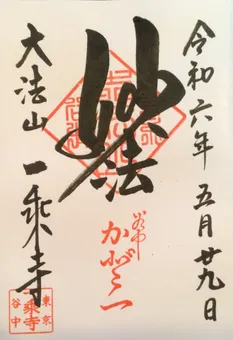 令和六年 五月廿九日
妙法
谷中
かどつ一
大法山 一乗寺
東京
一乗寺
谷中